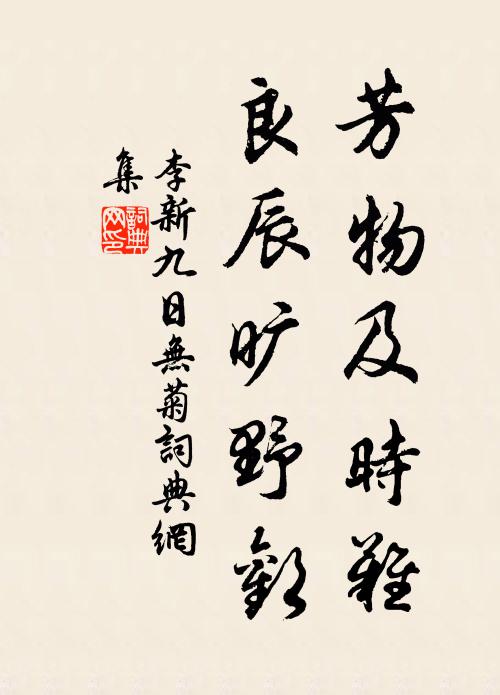 芳物及時難
良辰旷野歡
李新九日無菊詞典網
集
詞典
网印